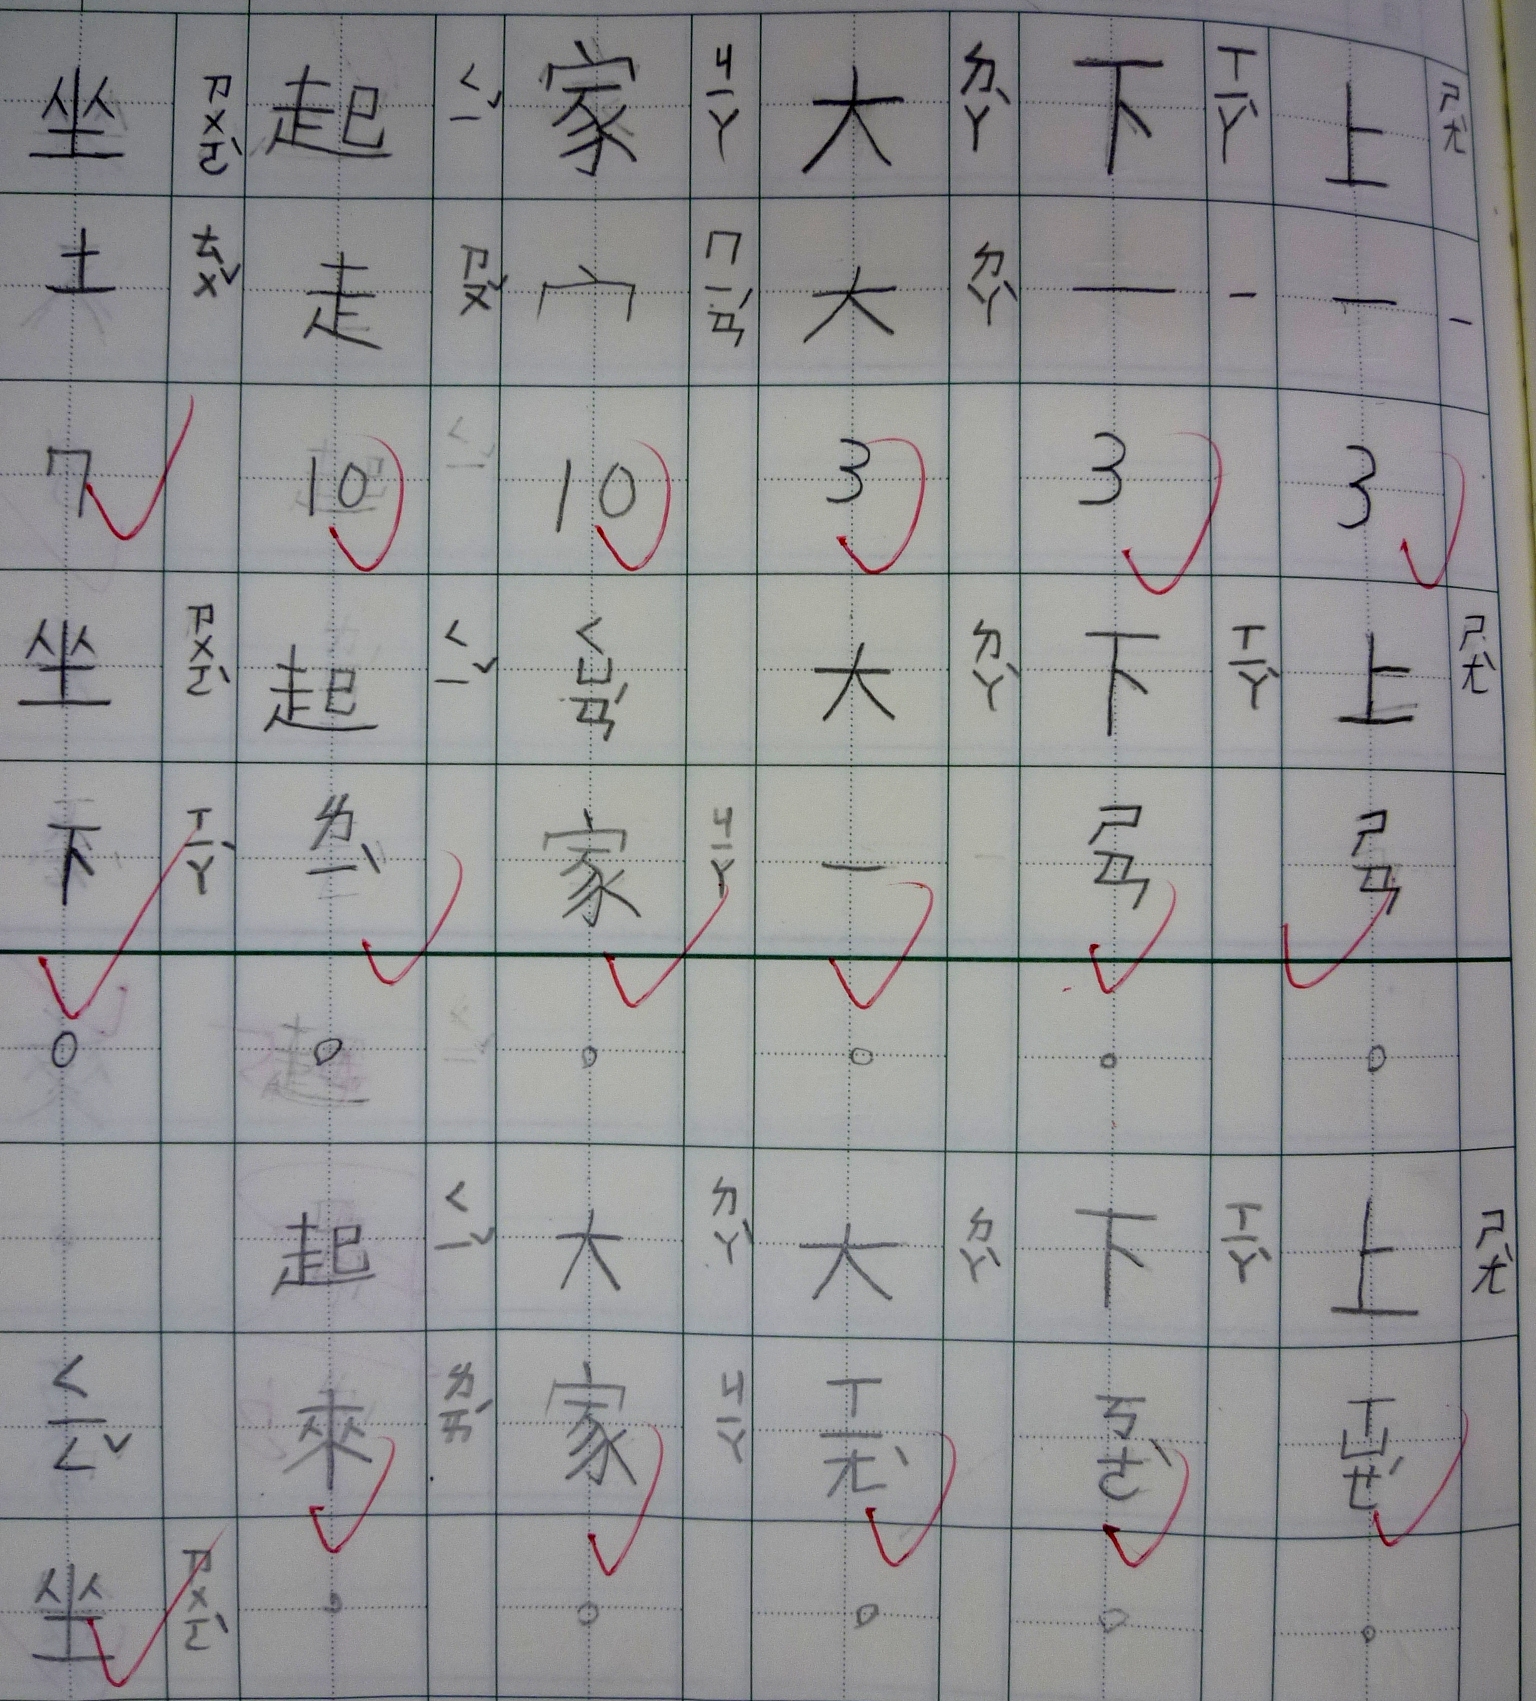 上ㄕㄤˋ 一ㄧ 3 上ㄕㄤˋㄕㄢ。 上ㄕㄤˋㄒㄩㄝˊ。
下ㄒㄧㄚˋ 一ㄧ 3 下ㄒㄧㄚˋㄕㄢ。 下ㄒㄧㄚˋㄎㄜˋ。
大ㄉㄚˋ 大ㄉㄚˋ 3 大ㄉㄚˋ一。 大ㄉㄚˋㄒㄧㄤˋ。
家ㄐㄧㄚ 宀ㄇㄧㄢˊ 10 ㄑㄩㄢˊ家ㄐㄧㄚ。 大ㄉㄚˋ家ㄐㄧㄚ。
起ㄑㄧˇ 走ㄗㄡˇ 10 起ㄑㄧˇㄌㄧˋ。 起ㄑㄧˇ來ㄌㄞˊ。
坐ㄗㄨㄛˋ 土ㄊㄨˇ 7 坐ㄗㄨㄛˋ下ㄒㄧㄚˋ。 ㄑㄧㄥˇ坐ㄗㄨㄛˋ